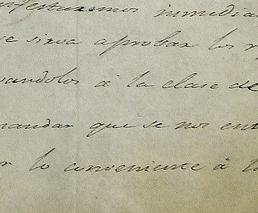 nifestaremos inmedia
e sirva aprobar los r
vandolos á la clase de
mandar que se nos ent
r lo conveniente á l